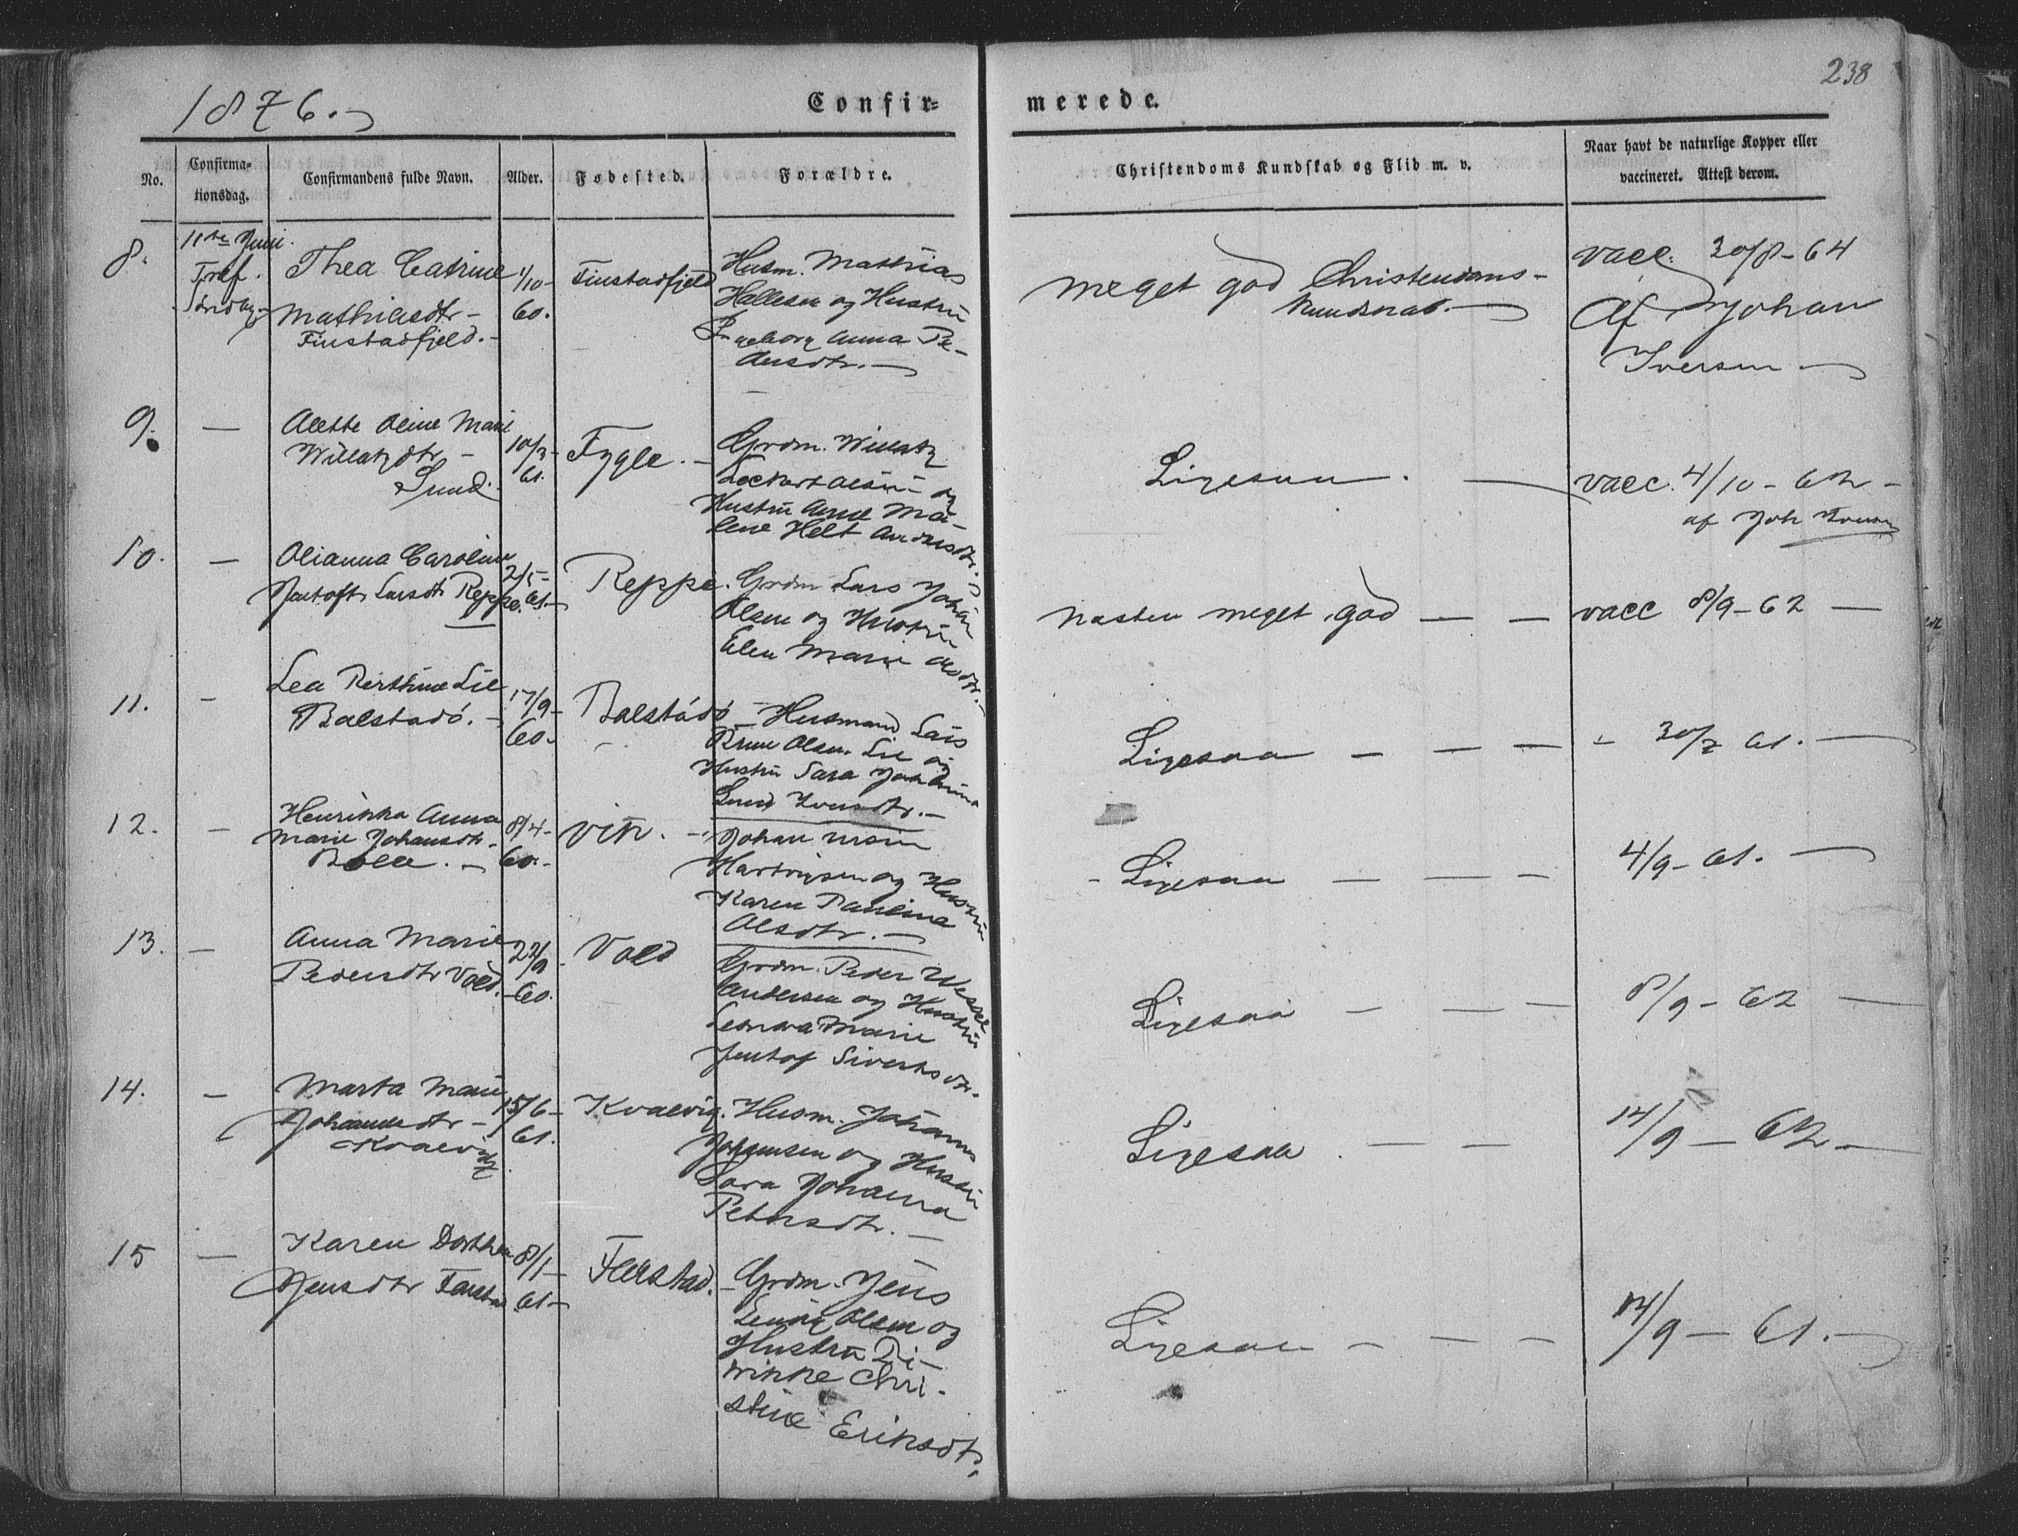 1876.
Confir-
merede.
238
No.
Confirma-
tionsdag.
Confirmandens fulde Navn.
Alder.
Fødested.
Forældre.
Christendoms Kundskab og Flid m. v.
Naar havt de naturlige Kopper eller
vaccineret. Attest derom.
8.
11te Juni.
Tref.
Søndag
Thea Catrine
Mathiasdtr -
Finstadfjeld. -
1/10-
60.
Finstadfjeld
Husm. Mathias
Hallesen og Hustru
Ingeborg Anna Pe-
dersdtr. -
meget god Christendoms-
kundskab. -
vacc. 30/8 - 64
af Johan
Iversen -
9.
-
Alette Oline Marie
Willatzdtr -
Lund.
10/3-
61.
Fygle. -
Grdm. Willatz
Olsen og
Hustru Anne Ma-
lene Helt Andersdtr.
Ligesaa. -
vacc. 4/10 - 62 -
af Joh Iversen
10.
-
Olianna Caroline
Jentoft Larsdtr Reppe.
2/5-
61.-
Reppe.
Grdm Lars Johan
Olsen og Hustru
Elen Marie Olsdtr. -
næsten meget god - -
vacc 8/9 - 62 -
11.
-
Lea Berthine Lie
Balstadø. -
17/9-
60.
Balstadø
- Husmand Lars
Brun Olsen Lie og
Hustru Sara Johanna
Lund Iversdtr. -
Ligesaa - - -
- 30/7 61. -
12.
-
Henrikka Anna
Marie Johansdtr.
Bolle. -
8/4-
60.-
Vik. -
Johan
Hartvigsen og Hustru
Karen Paulina
Olsdtr. -
- Ligesaa - - -
4/9 - 61. -
13.
-
Anna Marie
Pedersdtr Vold.
22/9
-60.
Vold
Grdm. Peder Wessel
Andersen og Hustru
Marie
Jentof Sivertsdtr.
Ligesaa - - -
8/9 - 62 -
14.
-
Marta Marie
Johansdtr -
Kvalvig
15/6-
61.
Kvalvig.
Husm. Johan
Johansen og Hustru
Sara Johanna
Petersdtr. -
Ligesaa. - - -
14/9 - 62 -
15
-
Karen Dorthea
Jensdtr Farstad
8/1-
61-
Farstad.
- Grdm. Jens
Olsen og
Hustru Di-
drikke Chri-
stine Eriksdtr.
Ligesaa - - -
14/9 - 61. -